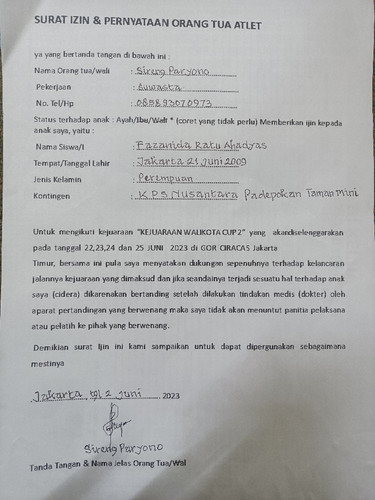 SURAT IZIN & PERNYATAAN ORANG TUA ATLET
ya yang bertanda tangan di bawah ini :
Nama Orang tua/wali : Sireng Paryono
Pekerjaan : Auwasta
No. Tel/Hp : 085893070973
Status terhadap anak : Ayah/Ibu/Walt * (coret yang tidak perlu) Memberikan ijin kepada
anak saya, yaitu :
Nama Siswa/I : Fazanida Ratu Ahadyas
Tempat/Tanggal Lahir : Jakarta 21 Juni 2009
Jenis Kelamin : Perempuan
Kontingen : KPS Nusantara Padepokan Taman mini
Untuk mengikuti kejuaraan "KEJUARAAN WALIKOTA CUP 2" yang akandiselenggarakan
pada tanggal 22,23,24 dan 25 JUNI 2023 di GOR CIRACAS Jakarta
Timur, bersama ini pula saya menyatakan dukungan sepenuhnya terhadap kelancaran
jalannya kejuaraan yang dimaksud dan jika seandainya terjadi sesuatu hal terhadap anak
saya (cidera) dikarenakan bertanding setelah dilakukan tindakan medis (dokter) oleh
aparat pertandingan yang berwenang maka saya tidak akan menuntut panitia pelaksana
atau pelatih ke pihak yang berwenang.
Demikian surat Ijin ini kami sampaikan untuk dapat dipergunakan sebagaimana
mestinya
Jakarta tgl 2 Juni 2023
Sireng Paryono
Tanda Tangan & Nama Jelas Orang Tua/Wal